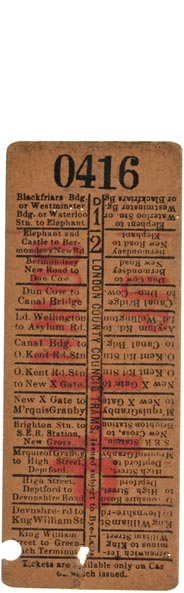 0416
Blackfriars Bdg.
or Westminster
Bdg. or Waterloo
Stn. to Elephant
Elephant and
Castle to Ber-
mondsey New Rd
Bermondsey
New Road to
Dun Cow
Dun Cow to
Canal Bridge
Ld. Wellington
to Asylum Rd.
Canal Bdg.
O. Kent Rd. Stn
O. Kent Rd. Stn.
to New X Gate
New X Gate to
M'rquisGranby
Brighton Stn. to
S.E.R. Station,
New Cross
MrquisofGranby
to High Street,
Deptford
High Street,
Deptford to
Devonshire Road
Devonshire-rd to
KngWilliam St
King William
Street to Green-
wich Terminus
D
1
2
LONDON COUNTY COUNCIL TRAMS.
Issued subject to Bye-Laws
or Blackfriars Bdg
Westminster Bg
or Waterloo Stn.
Elephant to
Elephant to
New Road to
Bermondsey
Bermondsey
New Road to
Dun Cow
Dun Cow to
Canal Bridge
Ld. Wellington
to Asylum Rd.
Canal Bdg.
O Kent Rd. Stn
O. Kent Rd. Stn
to New X Gate
New X Gate to
M'rquisGranby
Brighton Station
New Cross, to
S.E.R. Station
MrquisofGranby
to High Street,
Deptford
Deptford to
High Street,
Devonshire Rd
Devonshire-rd to
KngWilliam St
Tickets are available only on Car
on which issued.